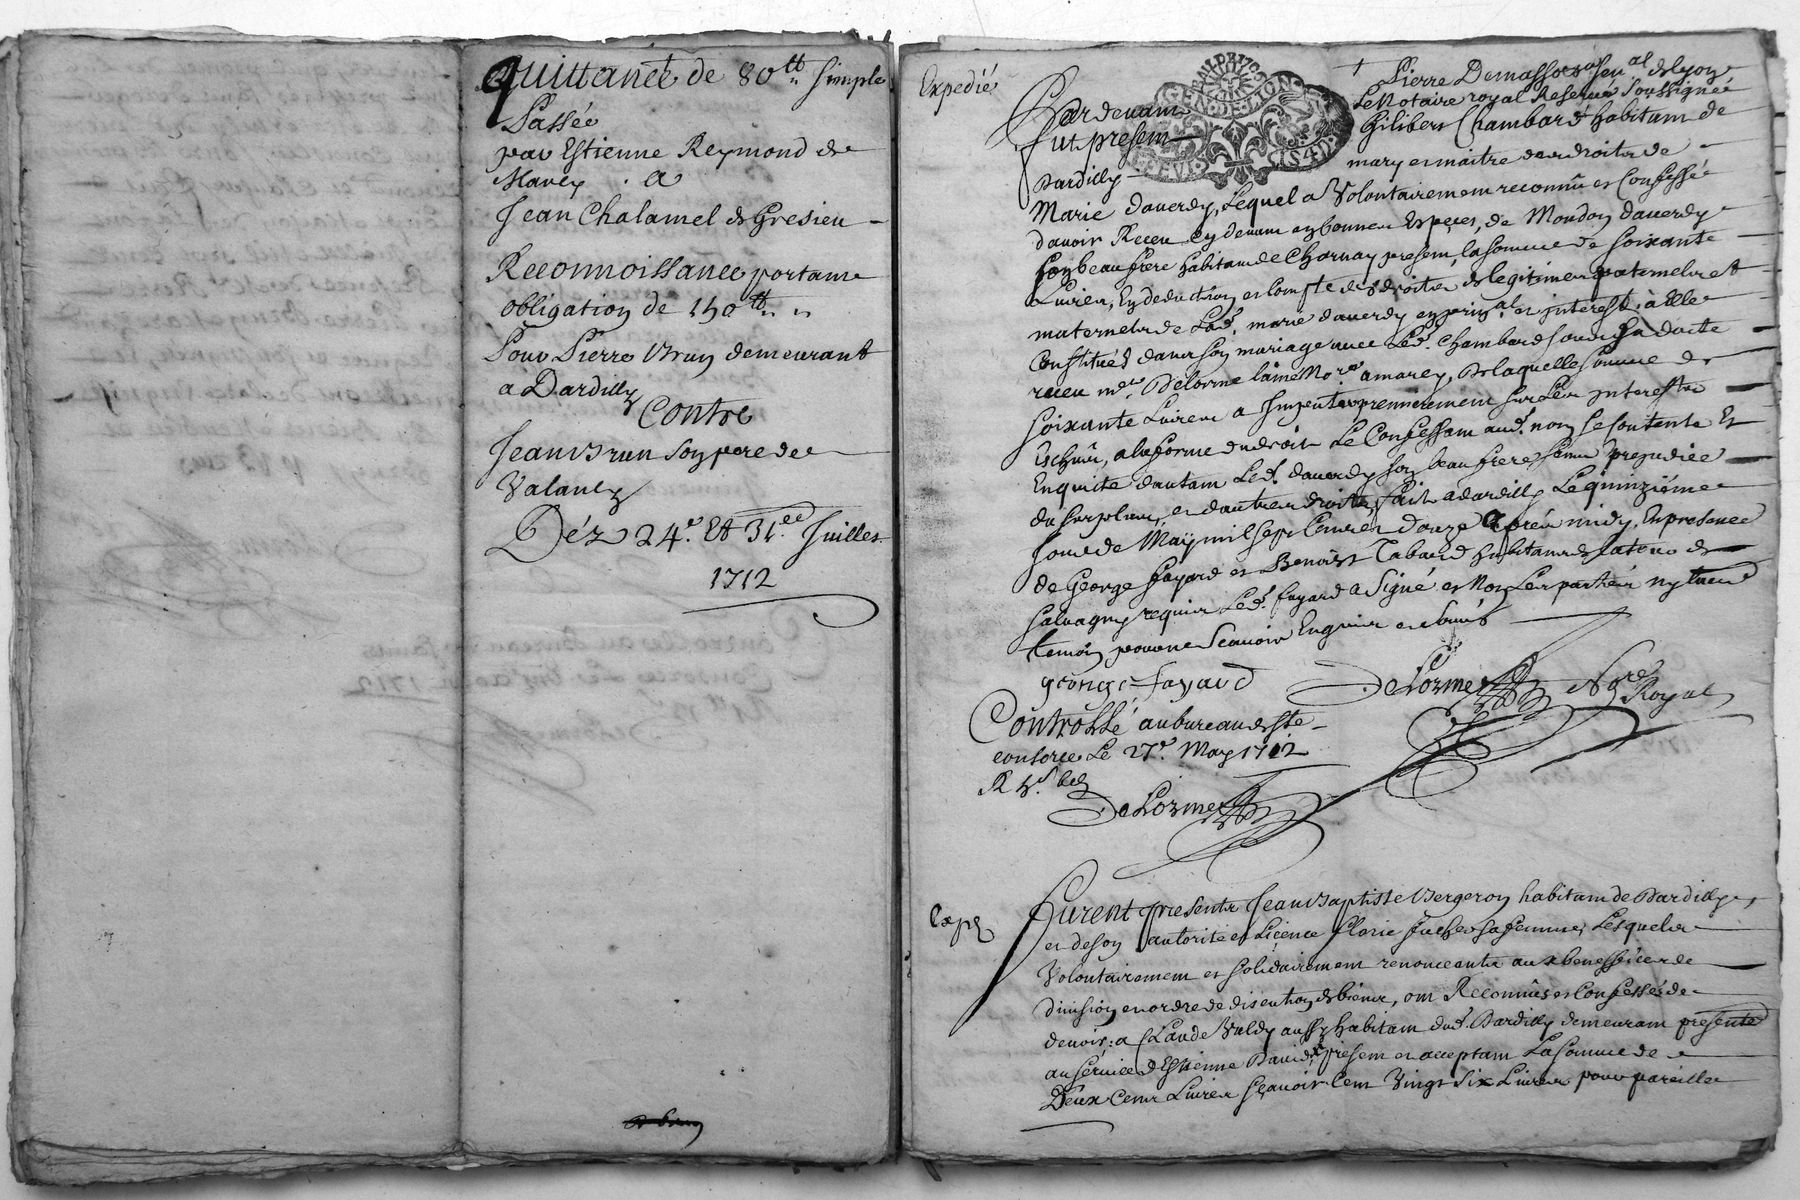 Quittance de 80tt simple
Passée
par Estienne Reymond de
Marcy . A
Jean Chalamel de Gresieu
Reconnoissance portant
obligation de 150tt
Pour Pierre Brun demeurant
a Dardilly
Contre
Jean Brun son pere de
Déz 24e. Et 31ee Juillet
1712
Expedié
GEN. DE LION
Pardevant
Pierre Demasso senal de Lyon
Le Notaire royal Reservé Soussigné
fut present
Gilibert Chambard habitant de
Dardilly
mary et maitre des droits de
Marie daverdy, Lequel a Volontairement reconnu et Confessé
davoir Receu cy devant en bonnes Especes, de Mondon daverdy
son beaufrere habitant de Charnay present, la somme de soixante
Livres, En deduction et Compte des droits de legitimes paternels et
maternels de Lad. marie daverdy en prinal. et interest. à Elle
Constitués dans son mariage avec Led. Chambard
receu me. Delorme laine Nore a marcy, De laquelle somme de
soixante Livres a Imputer premierement sur Les Interests
Escheus, a la forme du droit Le Confessant aud. nom se contente Et
En quitte dautant Led. daverdy son beaufrere sans prejudice
du surplus, et dautres droits, fait a dardilly Le quinziéme
Jour de May mil sept Cents et douze apres midy, En presence
de George fayard et Benoist Tabard habitants de la tour de
salvagny requis Led. fayard a Signé et Non Les parties ny lautre
temoin pour ne Scavoir Enquis et
george fayard
DeLorme Nore Royal
Controllé au bureau de Ste
consorce Le 27e. May 1712
DeLorme
Exped
Furent presents Jean Baptiste Bergeron habitant de Dardilly,
et de son autorité et Licence florie sa femme, Lesquels
Volontairement et solidairement renonceants aux benefices de
division et ordre de discution de biens, ont Reconnus et Confessés
devoir : a Claude Valdy aussy habitant dud. Dardilly demeurant
au service d'Estienne David, present et acceptant La somme de
Deux Cents Livres sçavoir Cent Vingt six Livres pour pareille